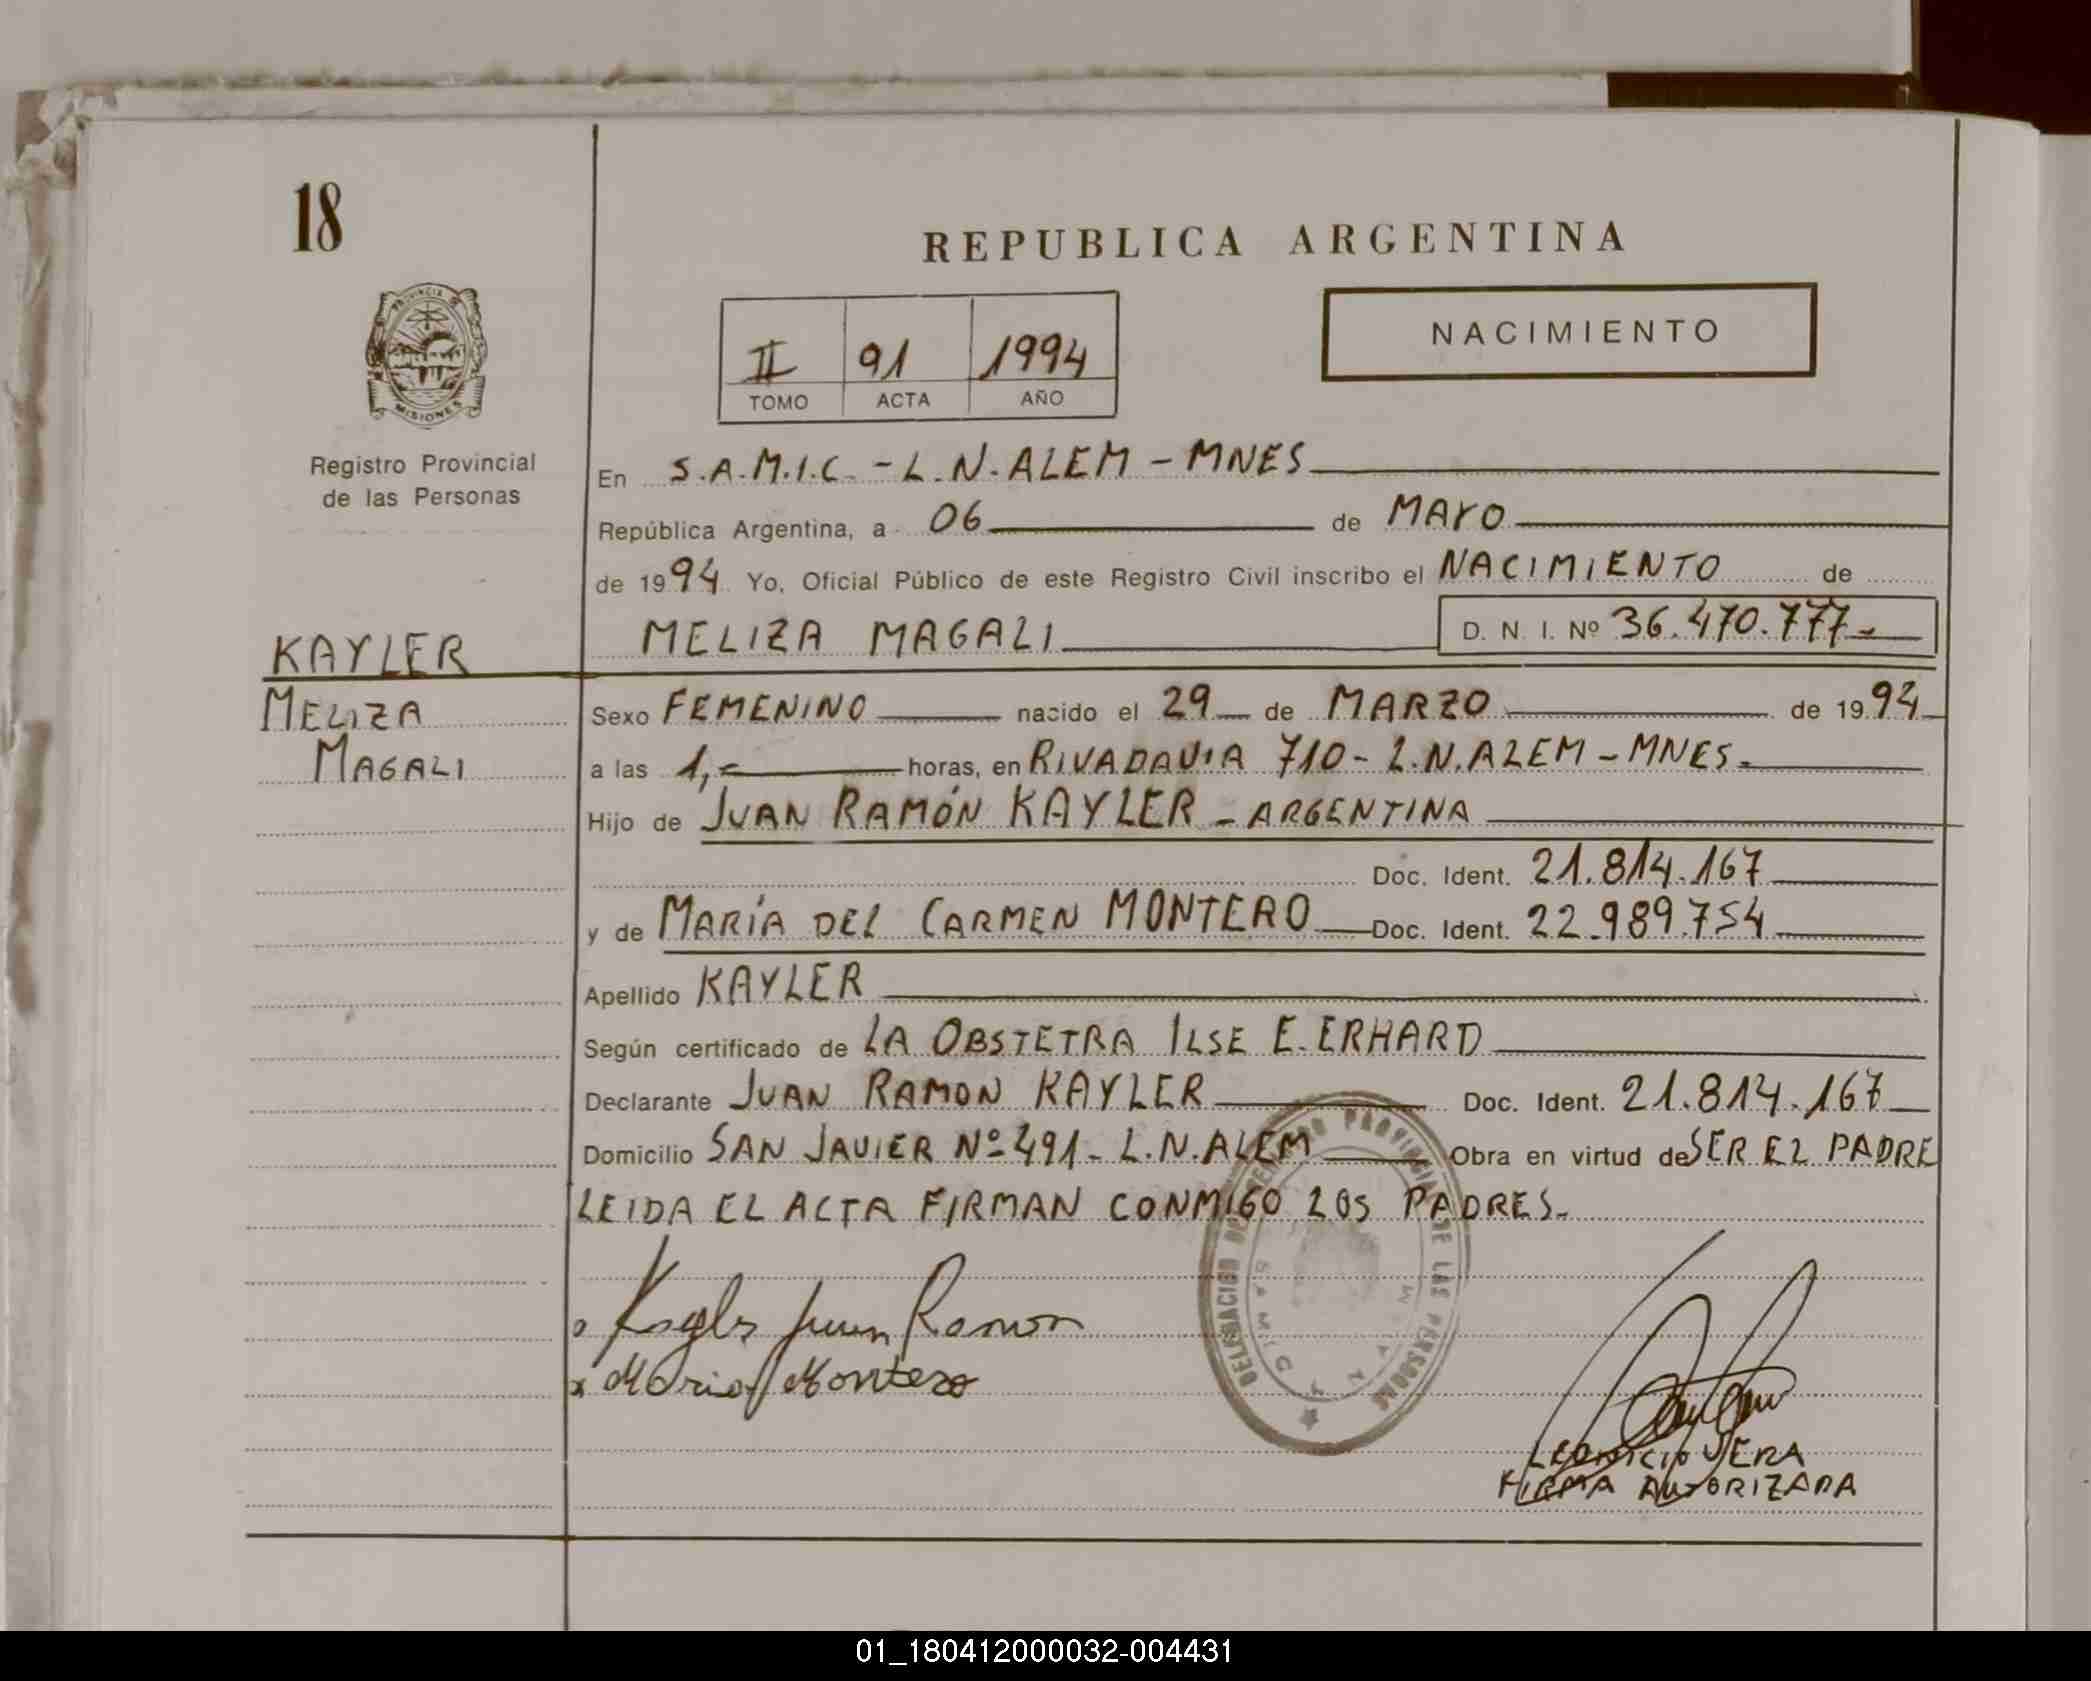 18
REPUBLICA ARGENTINA
PROVINCIA DE
MISIONES
Registro Provincial
de las Personas
II 91 1994
TOMO ACTA AÑO
NACIMIENTO
En S.A.M.I.C. - L.N. ALEM - MNES
República Argentina, a 06 de MAYO
de 1994 Yo, Oficial Público de este Registro Civil inscribo el NACIMIENTO de
KAYLER
MELIZA MAGALI D. N. I. Nº 36.470.777.-
MELIZA
MAGALI
Sexo FEMENINO nacido el 29 de MARZO de 1994
a las 1,- horas, en RIVADAVIA 710 - L.N. ALEM - MNES.
Hijo de JUAN RAMÓN KAYLER - ARGENTINA
Doc. Ident. 21.814.167
y de MARÍA DEL CARMEN MONTERO Doc. Ident. 22.989.754
Apellido KAYLER
Según certificado de LA OBSTETRA ILSE E. ERHARD
Declarante JUAN RAMON KAYLER Doc. Ident. 21.814.167
Domicilio SAN JAVIER Nº 491 - L.N. ALEM Obra en virtud de SER EL PADRE
LEIDA EL ACTA FIRMAN CONMIGO LOS PADRES.
Kayler Juan Ramon
Maria Montero
DELEGACION DEL REGISTRO PROVINCIAL DE LAS PERSONAS
LEONICIO VERA
FIRMA AUTORIZADA
01_180412000032-004431